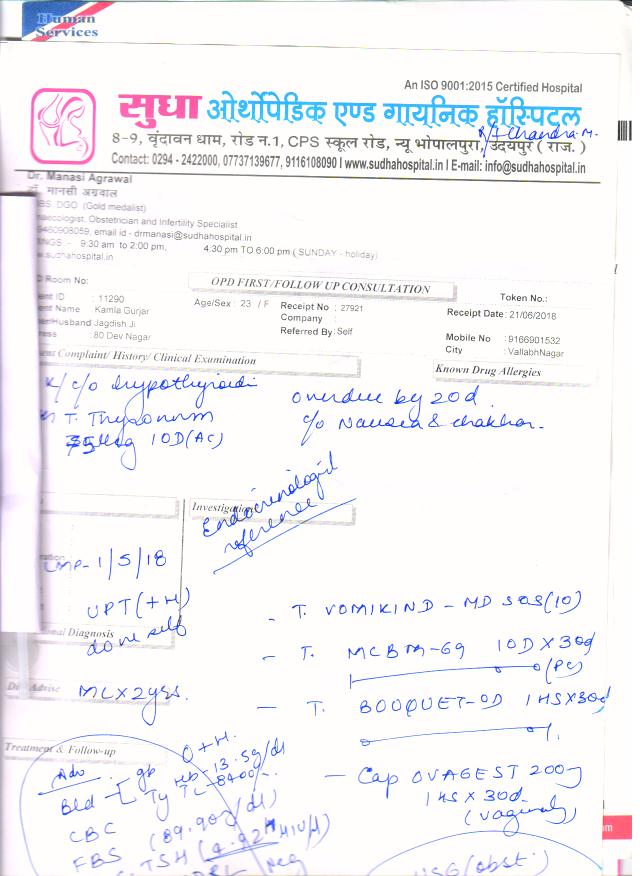 Human
Services
An ISO 9001:2015 Certified Hospital
सुधा ऑर्थोपेडिक एण्ड गायनिक हॉस्पिटल
8-9, वृंदावन धाम, रोड न.1, CPS स्कूल रोड, न्यू भोपालपुरा, उदयपुर ( राज. )
Contact: 0294 - 2422000, 07737139677, 9116108090 I www.sudhahospital.in I E-mail: info@sudhahospital.in
Dr. Manasi Agrawal
मानसी अग्रवाल
BS DGO (Gold medalist)
naecologist, Obstetrician and Infertility Specialist.
9460908059, email id - drmanasi@sudhahospital.in
INGS :- 9:30 am to 2:00 pm, 4:30 PM TO 6:00 pm ( SUNDAY - holiday)
w.sudhahospital.in
Room No: OPD FIRST/FOLLOW UP CONSULTATION Token No.:
ent ID : 11290 Age/Sex : 23 / F Receipt No : 27921 Receipt Date : 21/06/2018
ent Name : Kamla Gurjar Company :
er/Husband Jagdish Ji Referred By: Self Mobile No : 9166901532
ress : 80 Dev Nagar City : VallabhNagar
ent Complaint/ History/ Clinical Examination Known Drug Allergies
K/c/o hypothyroidi overdue by 20d.
T. Thyronorm c/o Nausea & chakkar.
75mcg 1OD (AC)
Investigation
Endocrinologist
reference
LMP- 1/5/18
UPT (+H)
done self
- T. VOMIKIND - MD SOS (10)
nal Diagnosis
- T. MCBM-69 1OD X 30d
(PC)
Advise ML X 2yrs.
- T. BOUQUET-OD 1HS X 30d
Treatment & Follow-up
Adv O+H.
Bld gb Hb-13.5g/dl
Ty TL-8400/-.
- Cap OVAGEST 200g
1HS X 30d.
(vaginaly)
CBC
FBS (89.90g/dl)
TSH (4.92 MIU/l)
Neg
USG (obst.)
om